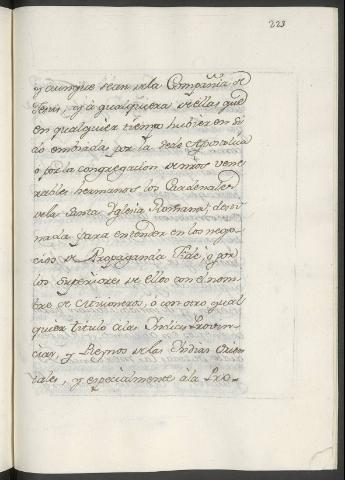 223
y aunque sean de la Compañia de
Jesus, y à qualquiera de ellas que
en qualquier tiempo hubieren si
do embiadas por la Sede Apostolica
o por la congregacion de nros vene
rables hermanos los Cardenales
de la Santa Iglesia Romana, desti
nada para entender en los nego
cios de Propaganda Fide, o por
los Superiores de ellos con el nom
bre de Misioneros, ò con otro qual
quier titulo a las Indias Provin
cias, y Reynos de las Indias Orien
tales, y especialmente à la Pro-